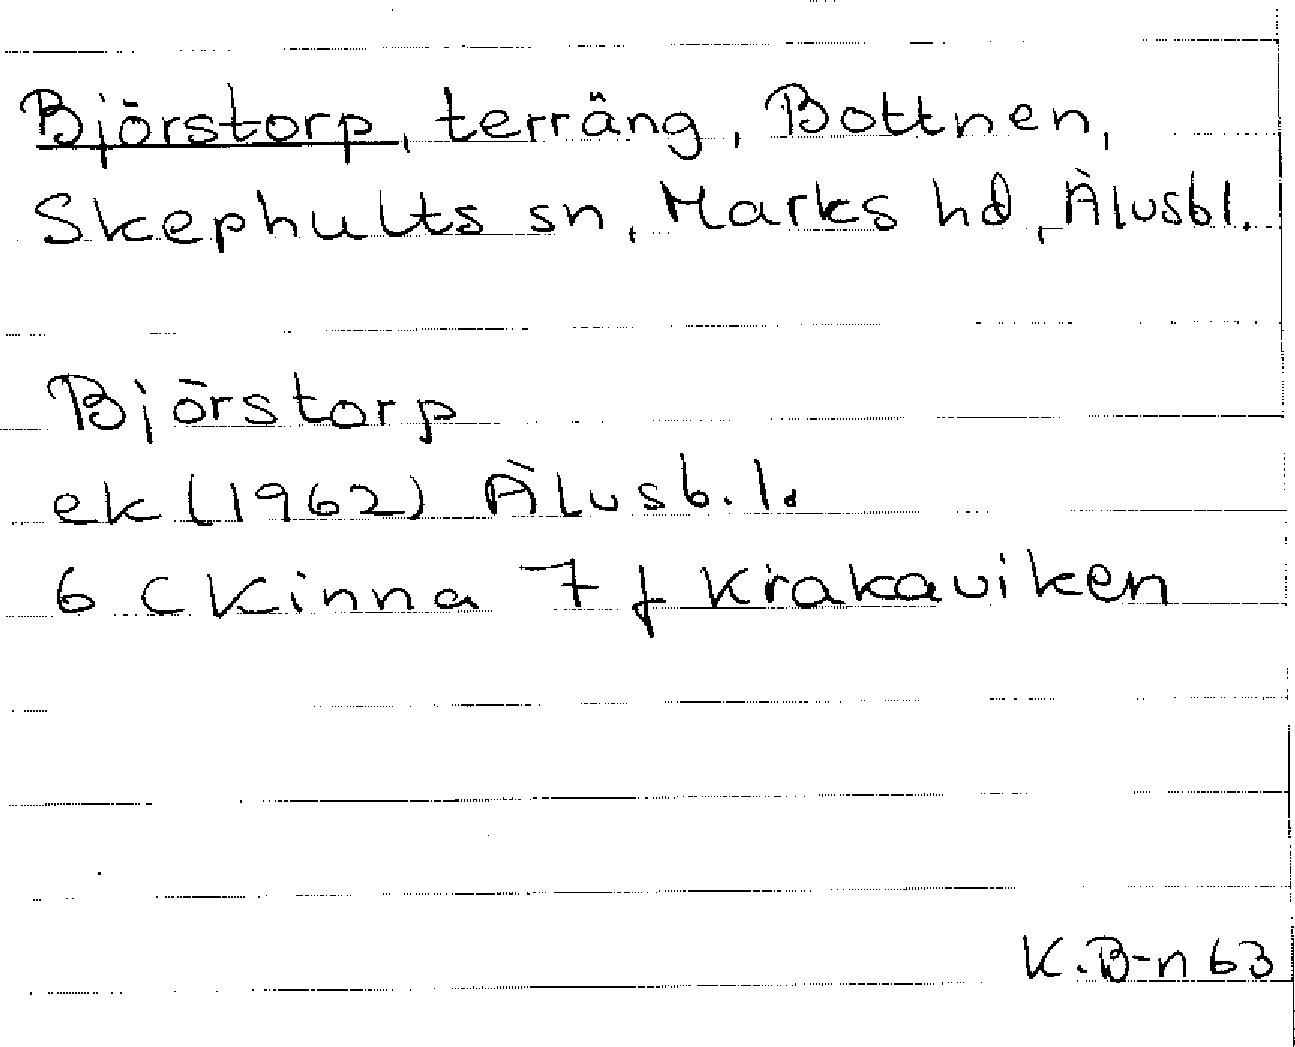 Björstorp, terräng, Bottnen,
Skephults sn, Marks hd, Älvsbl.
Björstorp
ek (1962) Älvsb.l.
6 C Kinna 7 f Krakaviken
K.B-n 63